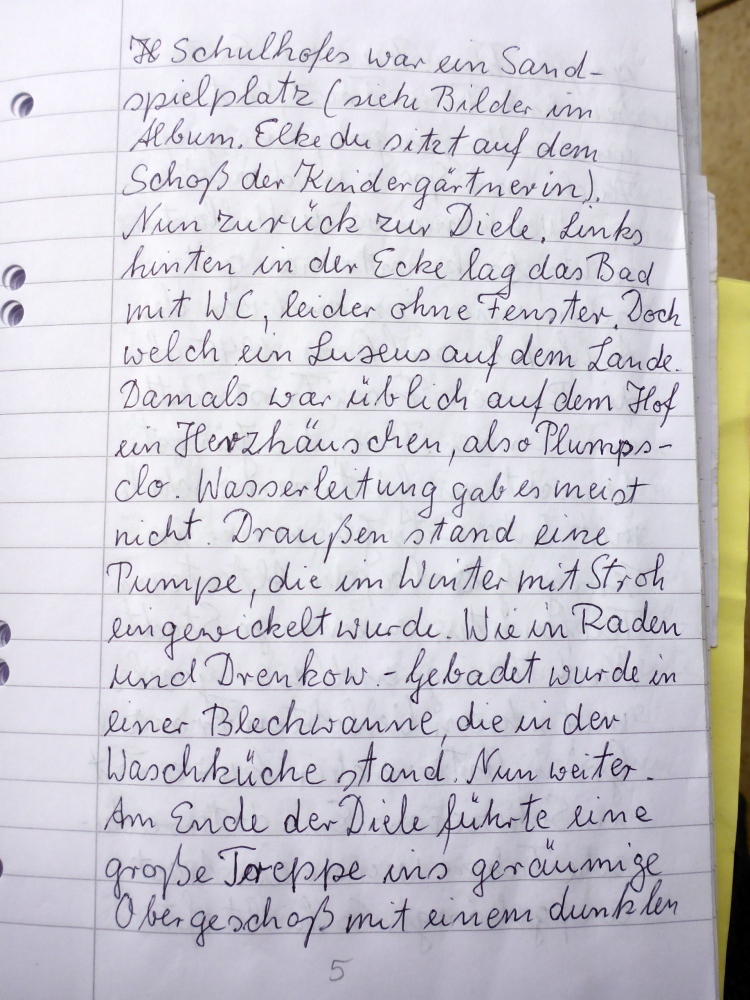 Schulhofes war ein Sand-
spielplatz (siehe Bilder im
Album. Elke du sitzt auf dem
Schoß der Kindergärtnerin).
Nun zurück zur Diele. Links
hinten in der Ecke lag das Bad
mit WC, leider ohne Fenster. Doch
welch ein Luxus auf dem Lande.
Damals war üblich auf dem Hof
ein Herzhäuschen, also Plumps-
clo. Wasserleitung gab es meist
nicht. Draußen stand eine
Pumpe, die im Winter mit Stroh
eingewickelt wurde. Wie in Raden
und Drenkow. - Gebadet wurde in
einer Blechwanne, die in der
Waschküche stand. Nun weiter.
Am Ende der Diele führte eine
große Treppe ins geräumige
Obergeschoß mit einem dunklen
5